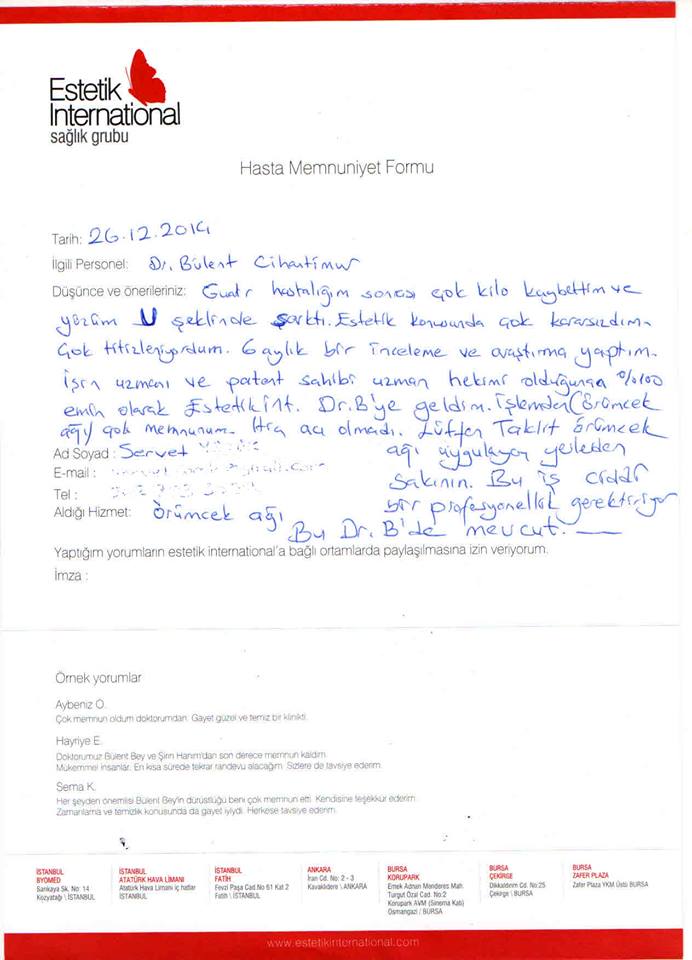 Estetik
International
sağlık grubu
Hasta Memnuniyet Formu
Tarih: 26.12.2014
İlgili Personel: Dr. Bülent Cihantimur
Düşünce ve önerileriniz: Guatr hastalığım sonrası çok kilo kaybettim ve
yüzüm U şeklinde sarktı. Estetik konusunda çok kararsızdım.
Çok titizleniyordum. 6 aylık bir inceleme ve araştırma yaptım.
İşin uzmanı ve patent sahibi uzman hekimi olduğundan %100
emin olarak Estetik İnt. Dr. B'ye geldim. İşlemden (Örümcek
ağı) çok memnunum. Hiç acı olmadı. Lütfen Taklit örümcek
ağı uygulayan yerleden
Ad Soyad: Servet
sakının. Bu iş ciddi
E-mail :
bir profesyonellik gerektiriyor
Tel :
Aldığı Hizmet: Örümcek ağı
Bu Dr. B'de mevcut.
Yaptığım yorumların estetik international'a bağlı ortamlarda paylaşılmasına izin veriyorum.
İmza :
Örnek yorumlar
Aybeniz O.
Çok memnun oldum doktorumdan. Gayet güzel ve temiz bir klinikti.
Hayriye E.
Doktorumuz Bülent Bey ve Şirin Hanım'dan son derece memnun kaldım.
Mükemmel insanlar. En kısa sürede tekrar randevu alacağım. Sizlere de tavsiye ederim.
Sema K.
Her şeyden önemlisi Bülent Bey'in dürüstlüğü beni çok memnun etti. Kendisine teşekkür ederim.
Zamanlama ve temizlik konusunda da gayet iyiydi. Herkese tavsiye ederim.
İSTANBUL
BYOMED
Sarıkaya Sk. No: 14
Kozyatağı \ İSTANBUL
İSTANBUL
ATATÜRK HAVA LİMANI
Atatürk Hava Limanı iç hatlar
İSTANBUL
İSTANBUL
FATİH
Fevzi Paşa Cad.No 61 Kat 2
Fatih \ İSTANBUL
ANKARA
İran Cd. No: 2 - 3
Kavaklıdere \ ANKARA
BURSA
KORUPARK
Emek Adnan Menderes Mah.
Turgut Özal Cad. No:2
Korupark AVM (Sinema Katı)
Osmangazi / BURSA
BURSA
ÇEKİRGE
Dikkaldırım Cd. No:25
Çekirge \ BURSA
BURSA
ZAFER PLAZA
Zafer Plaza YKM Üstü BURSA
www.estetikinternational.com